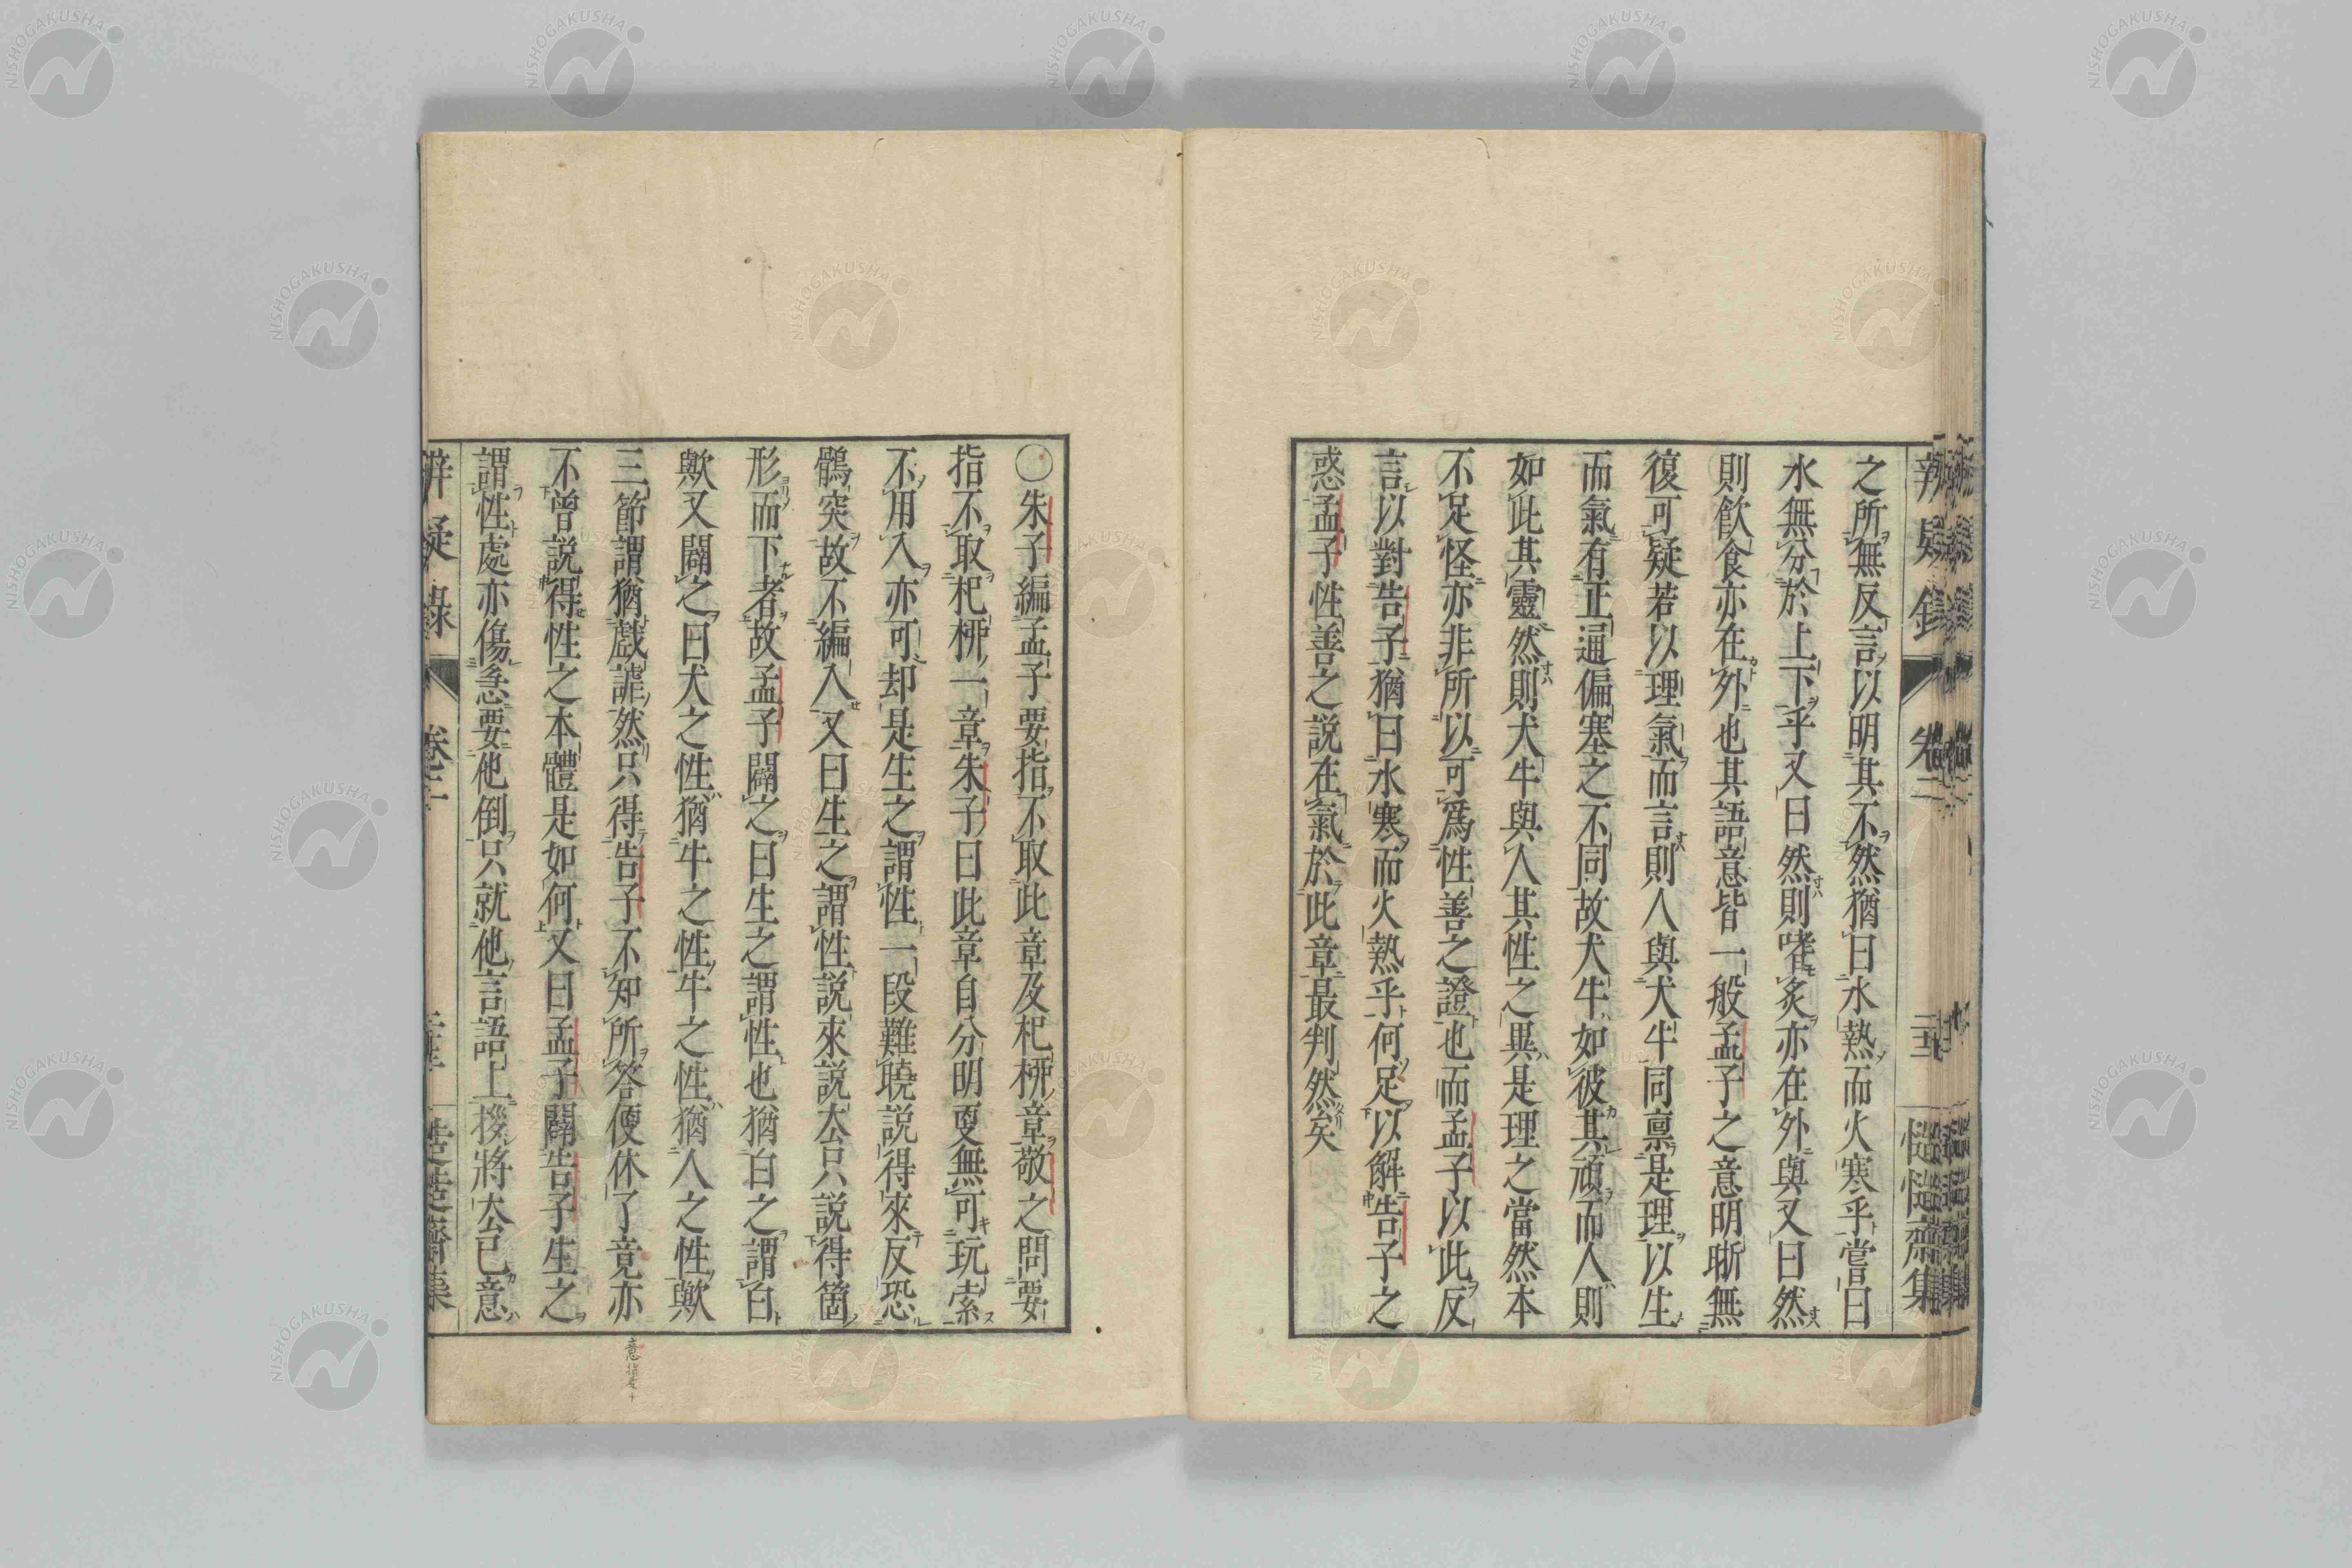 之所無反言以明其不然猶曰水熱而火寒乎嘗曰
水無分於上下乎又曰然則嗜炙亦在外與又曰然
則飲食亦在外也其語意皆一般孟子之意明晣無
復可疑若以理氣而言則人與犬牛同禀是理以生
而氣有正通偏塞之不同故犬牛如彼其頑而人則
如此其靈然則犬牛與人其性之異是理之當然本
不足怪亦非所以可爲性善之證也而孟子以此反
言以對告子猶曰水寒而火熱乎何足以解告子之
惑孟子性善之説在氣於此章最判然矣
〇朱子編孟子要指不取此章及杞柳章敬之問要
指不取杞柳一章朱子曰此章自分明更無可玩索
不用入亦可却是生之謂性一段難曉説得來反恐
鶻突故不編入又曰生之謂性説來説去只説得箇
形而下者故孟子闢之曰生之謂性也猶白之謂白
歟又闢之曰犬之性猶牛之性牛之性猶人之性歟
三節謂猶戲謔然只得告子不知所答便休了竟亦
不曾説得性之本體是如何又曰孟子闢告子生之
謂性處亦傷急要他倒只就他言語上撥將去己意
辨疑録
卷二
慥慥齋集
NISHOGAKUSHA